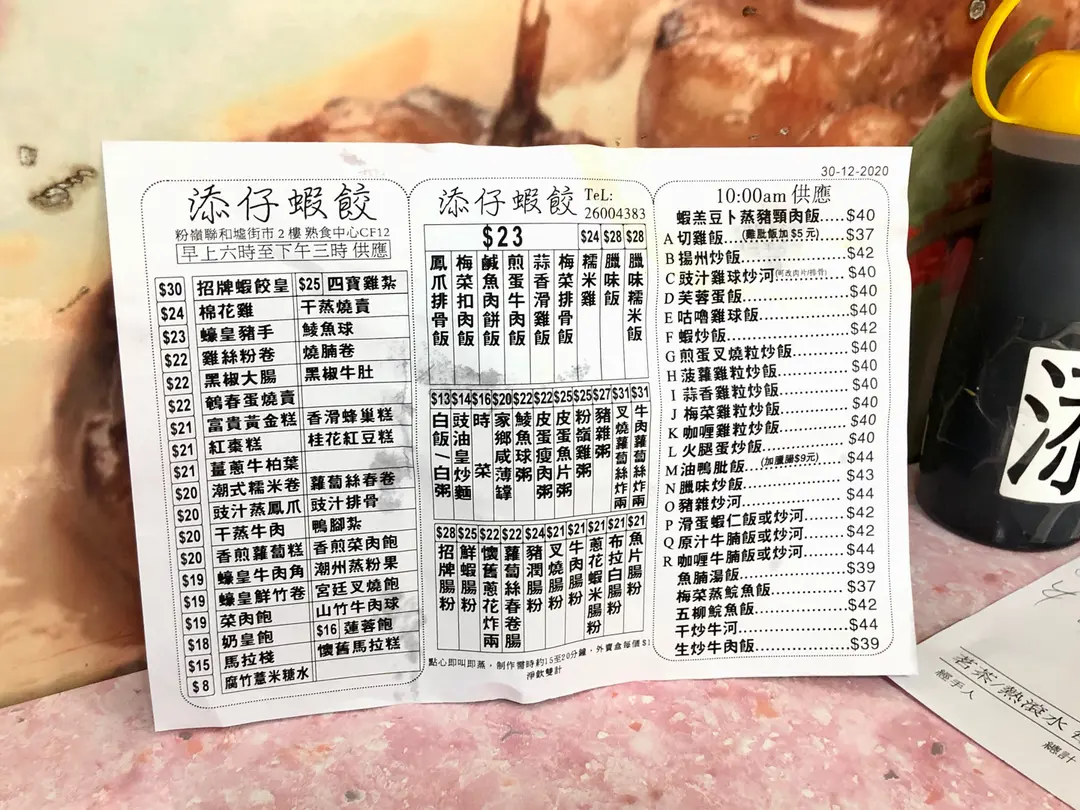 添仔蝦餃
粉嶺聯和墟街市2樓 熟食中心CF12
早上六時至下午三時 供應
$30 招牌蝦餃皇 $25 四寶雞紮
$24 棉花雞 干蒸燒賣
$23 蠔皇豬手 鯪魚球
$22 雞絲粉卷 燒腩卷
$22 黑椒大腸 黑椒牛肚
$22 鵪春蛋燒賣
$21 富貴黃金糕 香滑蜂巢糕
$21 紅棗糕 桂花紅豆糕
$21 薑蔥牛柏葉
$20 潮式糯米卷 蘿蔔絲春卷
$20 豉汁蒸鳳爪 豉汁排骨
$20 干蒸牛肉 鴨腳紮
$20 香煎蘿蔔糕 香煎菜肉飽
$19 蠔皇牛肉角 潮州蒸粉果
$19 蠔皇鮮竹卷 宮廷叉燒飽
$19 菜肉飽 山竹牛肉球
$18 奶皇飽 $16 蓮蓉飽
$15 馬拉棧 懷舊馬拉糕
$8 腐竹薏米糖水
添仔蝦餃
TeL:
26004383
$23 $24 $28 $28
鳳爪排骨飯
梅菜扣肉飯
鹹魚肉餅飯
煎蛋牛肉飯
蒜香滑雞飯
梅菜排骨飯
糯米雞
臘味飯
臘味糯米飯
$13 $14 $16 $20 $22 $22 $25 $25 $27 $31 $31
白飯一白粥
豉油皇炒麵
時菜
家鄉咸薄罉
鯪魚球粥
皮蛋瘦肉粥
皮蛋魚片粥
粉嶺雞粥
豬雜粥
叉燒蘿蔔絲炸兩
牛肉蘿蔔絲炸兩
$28 $25 $22 $22 $24 $21 $21 $21 $21 $21
招牌腸粉
鮮蝦腸粉
懷舊蔥花炸兩
蘿蔔絲春卷腸
豬潤腸粉
叉燒腸粉
牛肉腸粉
蔥花蝦米腸粉
布拉白腸粉
魚片腸粉
點心即叫即蒸，制作需時約15至20分鐘，外賣盒每個$1
淨飲雙計
30-12-2020
10:00am 供應
蝦羔豆卜蒸豬頸肉飯.....$40
A 切雞飯....(雞肶飯加$5元)......$37
B 揚州炒飯......$42
C 豉汁雞球炒河(可改肉片/排骨)......$40
D 芙蓉蛋飯......$40
E 咕嚕雞球飯......$40
F 蝦炒飯......$42
G 煎蛋叉燒粒炒飯......$40
H 菠蘿雞粒炒飯......$40
I 蒜香雞粒炒飯......$40
J 梅菜雞粒炒飯......$40
K 咖喱雞粒炒飯......$40
L 火腿蛋炒飯......$40
M 油鴨肶飯......(加臘腸$9元)......$44
N 臘味炒飯......$43
O 豬雜炒河......$44
P 滑蛋蝦仁飯或炒河......$42
Q 原汁牛腩飯或炒河......$42
R 咖喱牛腩飯或炒河......$44
魚腩湯飯......$39
梅菜蒸鯇魚飯......$37
五柳鯇魚飯......$42
干炒牛河......$44
生炒牛肉飯......$39
茗茶/熱滾水
經手人
總計